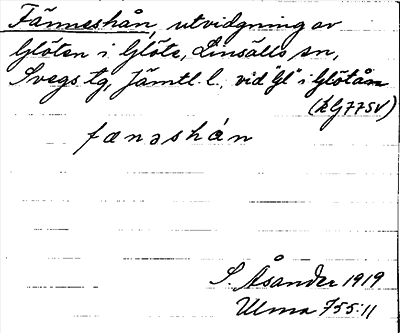 Fänneshån, utvidgning av
Glöten i Glöte, Linsälls sn,
Svegs tg, Jämtl. l., vid "Gl" i Glötån
(kG77SV)
fænəshán
S. Åsander 1919
Ulma 755:11